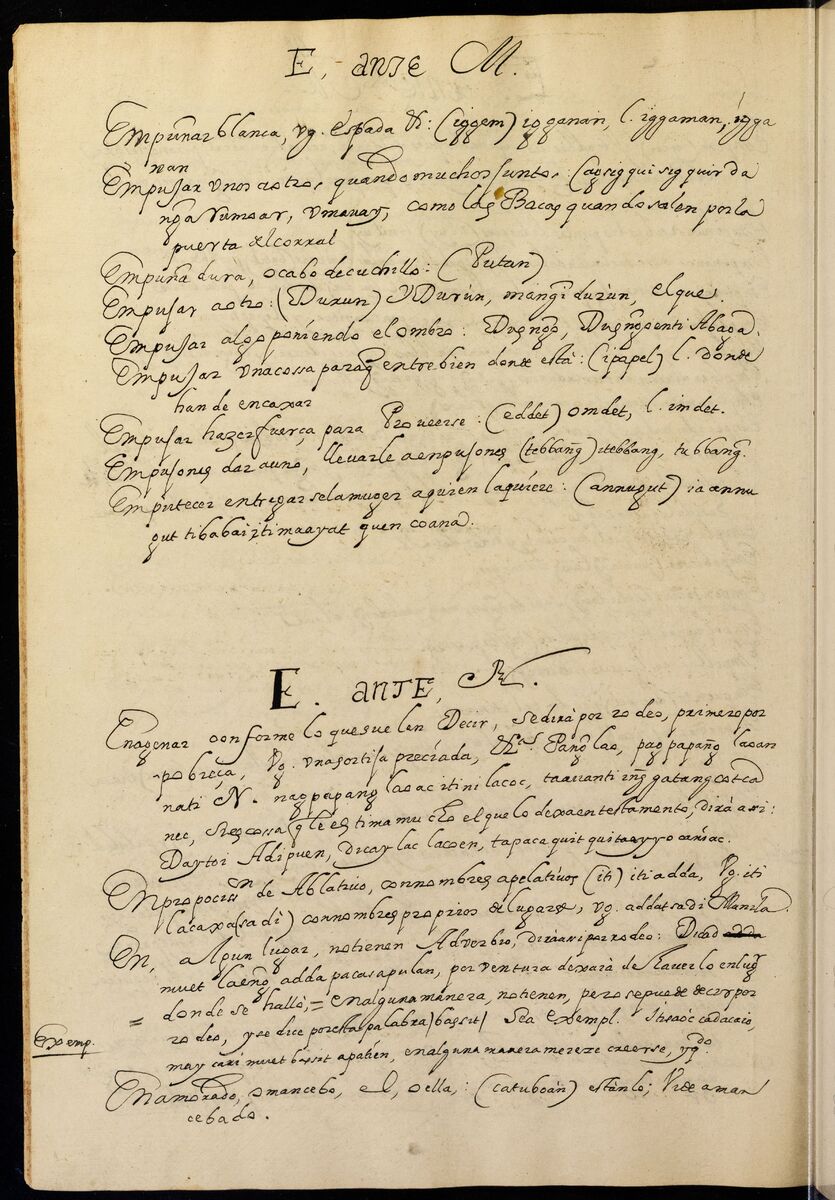 E, ante M.
Empuñar blanca, vg. espada &: (iggem) igganan, l. iggaman, ingga
man
Empusar unos aotros, quando muchos juntos: (agsigqui sigquir da
nga rumoar, umauay, como las Bacas quando salen por la
puerta del corral
Empuña dura, o cabo de cuchillo: (Putan)
Empusar aotro: (Duxun) Y Durun, mangidurun, el que.
Empusar algo poniendo el ombro: Abaga.
Empusar una cossa para q entre bien donde està: (ipapel) l. donde
han de encaxar
Empusar hazer fuerça para Proveerse: (eddet) omdet, l. imdet.
Empusones dar auno, llevarle aenpusones (tebbang) itebbang, tubbang.
entregarse la muger aquien laquiere: (annugut) ia annu
gut ti babai iti maayat quen coana.
E. ante, N.
Enagenar conforme lo que suelen Decir, se dirà por rodeo, primero por
pobreça, Vg. una sortija preciada, Panglao, pagpapang laoan
nati N. nagpapang laoac iti ni lacoc, taavanti
nec, Si es cossa q le estima mucho el que lo dexa en testamento, dirà axi:
Daytoi Adipuen, dicay lac lacoen, tapace quit quitaeyyo caniac.
En propociⁿ de Ablativo, con nombres apelativos (iti) iti adda, Vg. iti
lacaxa (sa di) con nombres proprios de lugares, vg. addat sadi Manila.
En, algun lugar, no tienen Adverbio, dirà axi por rodeo:
nuet laeng adda pacasapulan, por ventura dexarà de haverlo en lugʳ
donde se hallò, = en alguna manera, no tienen, pero se puede decir por
= rodeo, y se dice por esta palabra (bassit) Sea exempl.
Exemp.
may cari nuet bassit apatien, en alguna manera mereze creerse,
Enamorado, o mancebo, el, o ella,: (catuboan) estànlo; Vide aman
cebado.